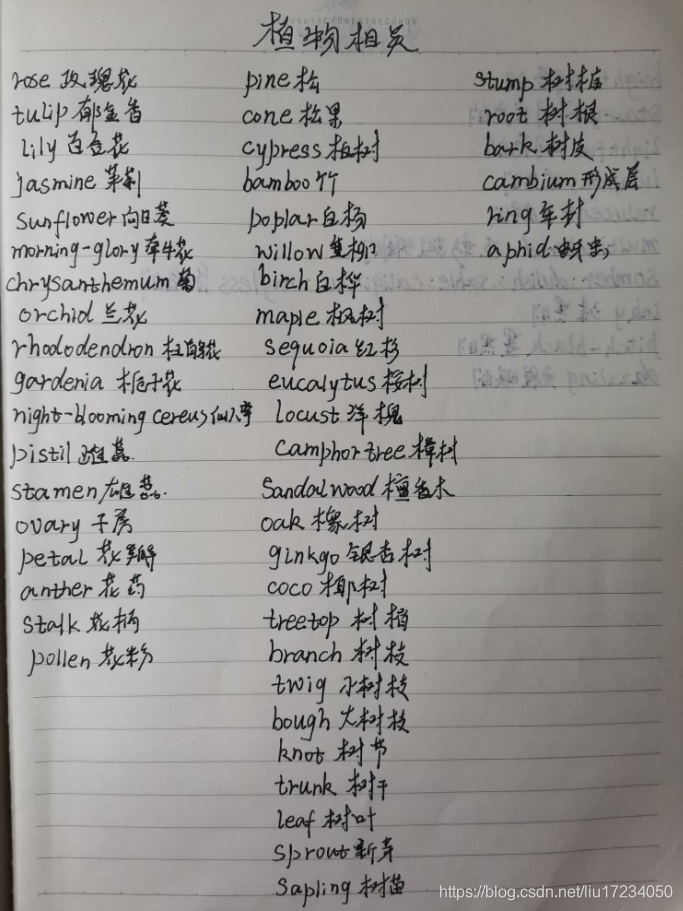 植物相关
rose 玫瑰花
tulip 郁金香
lily 百合花
jasmine 茉莉
sunflower 向日葵
morning-glory 牵牛花
chrysanthemum 菊
orchid 兰花
rhododendron 杜鹃花
gardenia 栀子花
night-blooming cereus 仙人掌
pistil 雌蕊
stamen 雄蕊
ovary 子房
petal 花瓣
anther 花药
stalk 花柄
pollen 花粉
pine 松
cone 松果
cypress 柏树
bamboo 竹
poplar 白杨
willow 垂柳
birch 白桦
maple 枫树
sequoia 红杉
eucalytus 桉树
locust 洋槐
camphor tree 樟树
sandalwood 檀香木
oak 橡树
ginkgo 银杏树
coco 椰树
treetop 树梢
branch 树枝
twig 小树枝
bough 大树枝
knot 树节
trunk 树干
leaf 树叶
sprout 新芽
sapling 树苗
stump 树桩
root 树根
bark 树皮
cambium 形成层
ring 年轮
aphid 蚜虫
https://blog.csdn.net/liu17234050